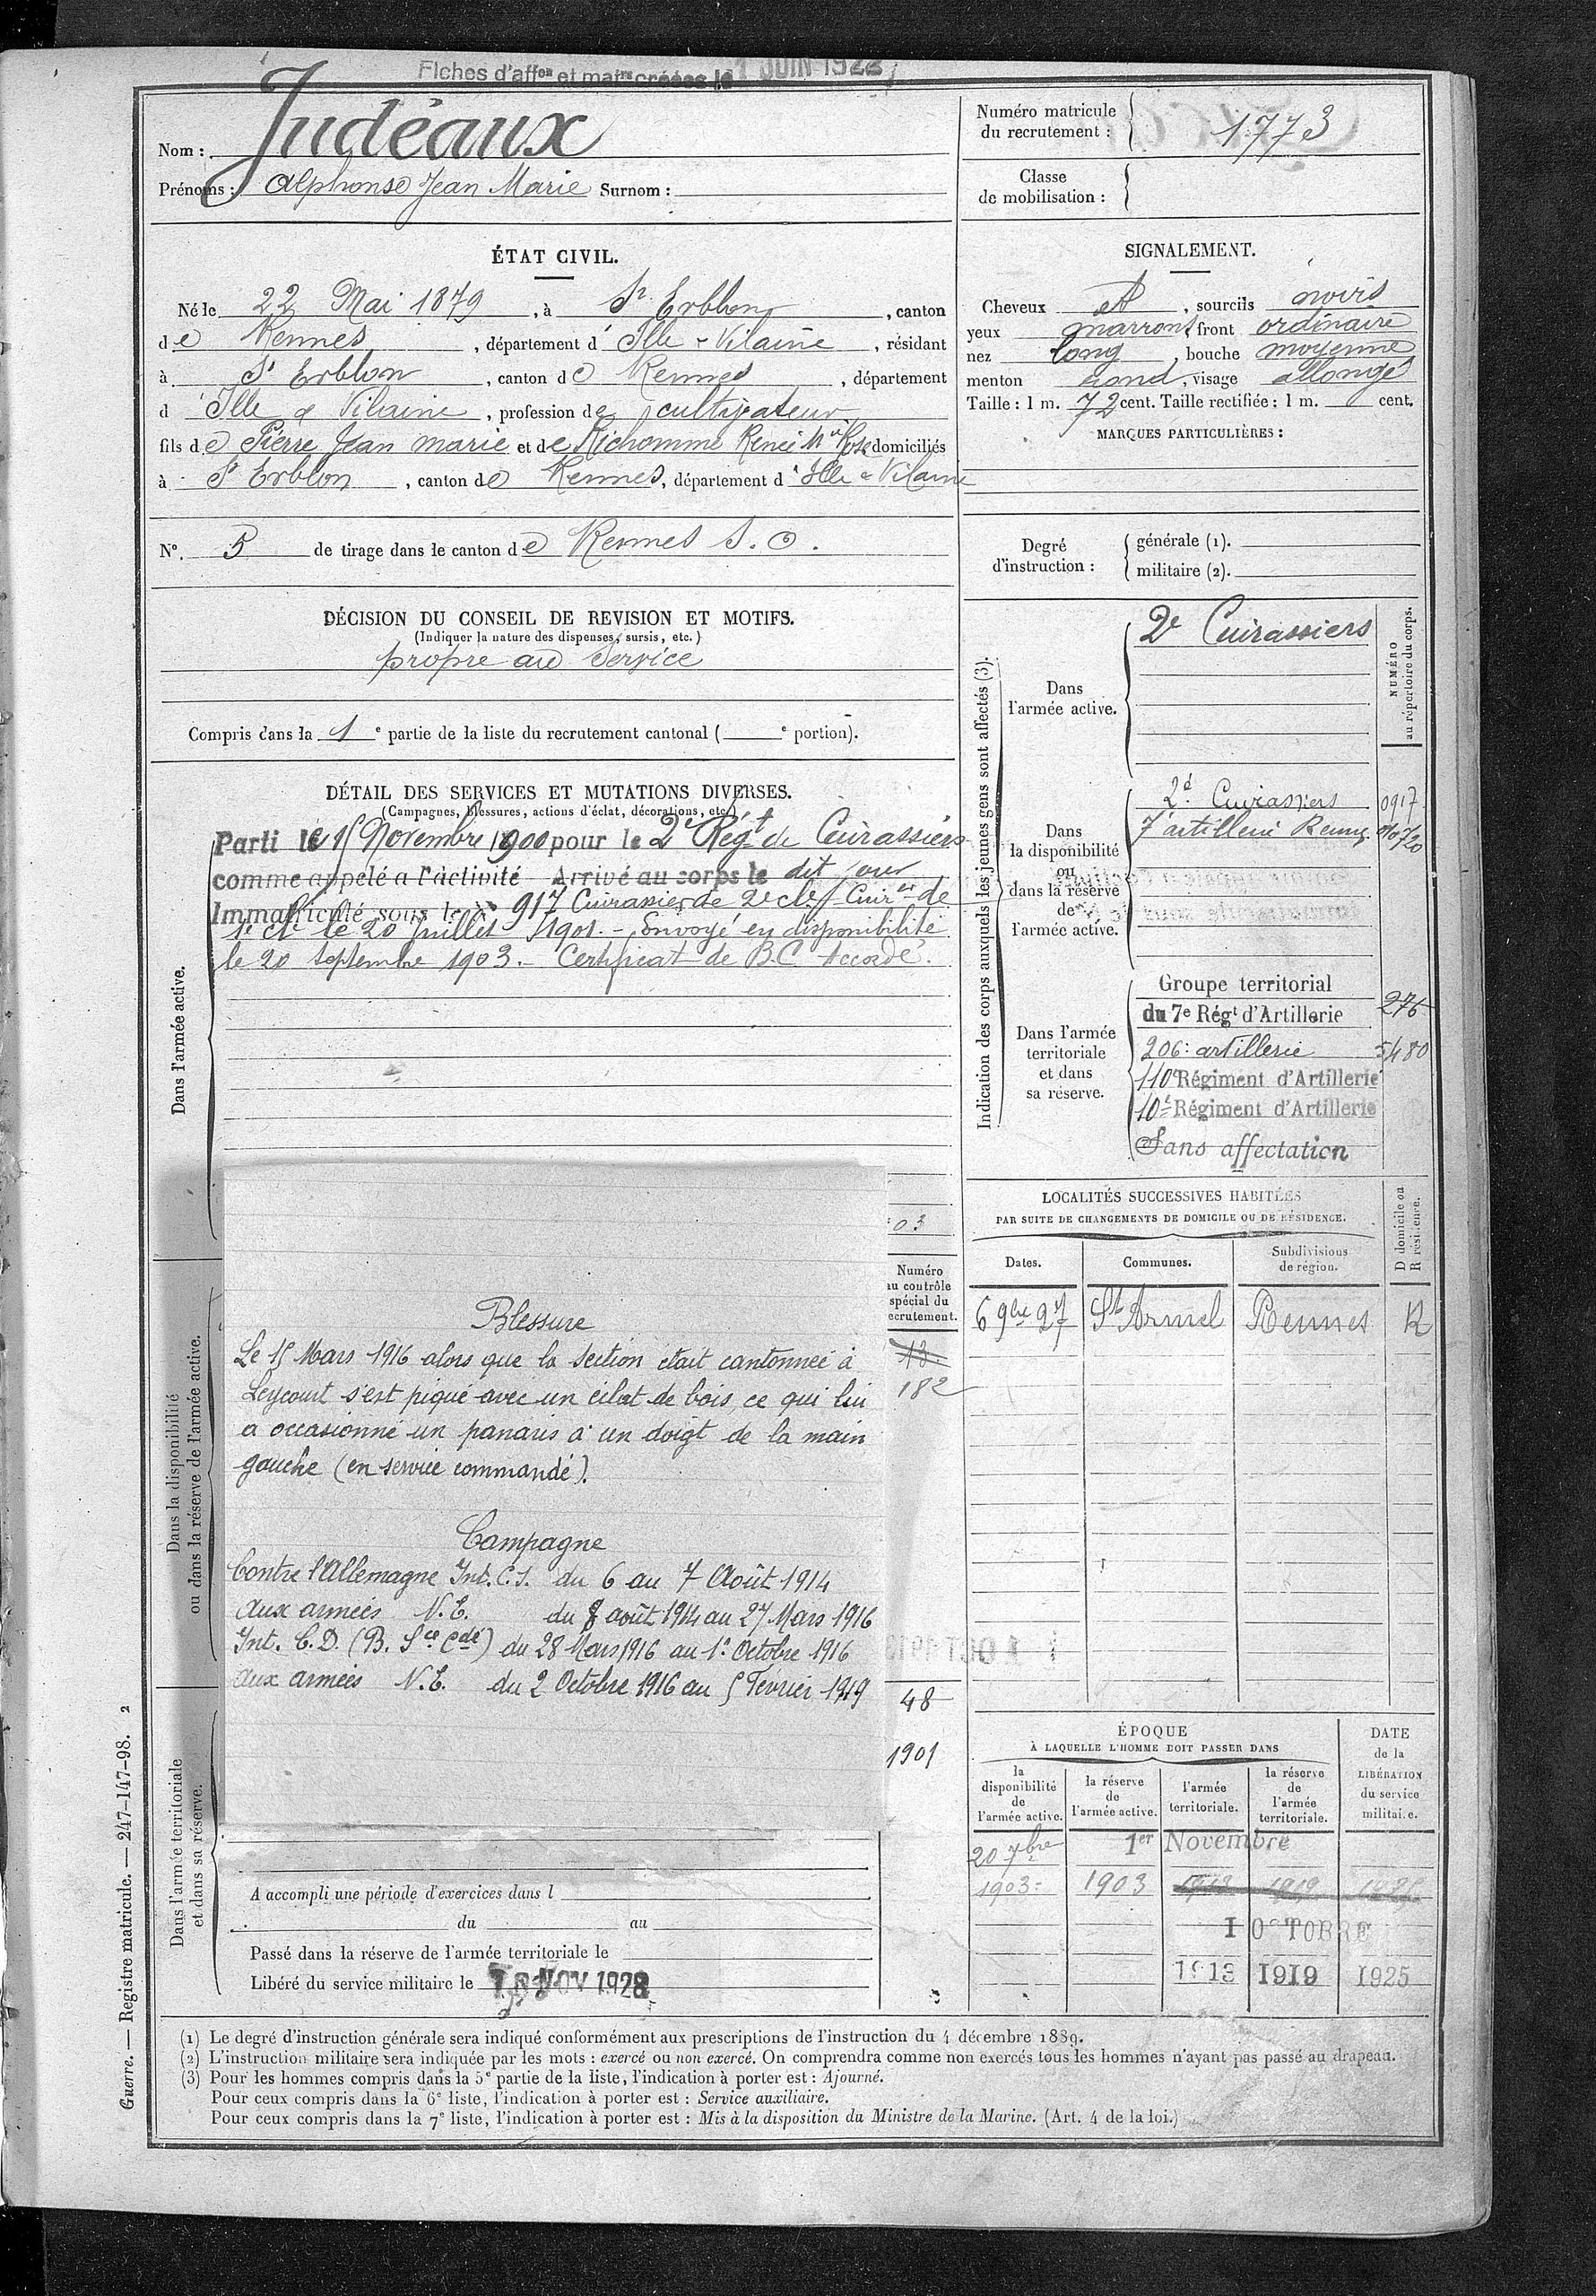 Fiches d'affon et matre créées le 1 JUIN 1922
Nom : Judéaux
Prénoms : Alphonse Jean Marie Surnom :
Numéro matricule du recrutement : 1773
Classe de mobilisation :
ÉTAT CIVIL.
Né le 22 Mai 1879, à St Erblon, canton
de Rennes, département d'Ille & Vilaine, résidant
à St Erblon, canton de Rennes, département
d'Ille & Vilaine, profession de cultivateur
fils de Pierre Jean Marie et de Richomme Renée Mie Rose domiciliés
à St Erblon, canton de Rennes, département d'Ille & Vilaine
No. 5 de tirage dans le canton de Rennes S. O.
DÉCISION DU CONSEIL DE REVISION ET MOTIFS.
(Indiquer la nature des dispenses, sursis, etc.)
propre au Service
Compris dans la 1e partie de la liste du recrutement cantonal ( e portion).
SIGNALEMENT.
Cheveux et, sourcils noirs
yeux marrons front ordinaire
nez long, bouche moyenne
menton rond, visage allongé
Taille : 1 m. 72 cent. Taille rectifiée : 1 m. cent.
MARQUES PARTICULIÈRES :
Degré d'instruction :
générale (1).
militaire (2).
DÉTAIL DES SERVICES ET MUTATIONS DIVERSES.
(Campagnes, blessures, actions d'éclat, décorations, etc.)
Dans l'armée active.
Parti le 15 Novembre 1900 pour le 2e Régt de Cuirassiers
comme appelé a l'activité Arrivé au corps le dit jour
Immatriculé sous le No 917 Cuirassier de 2e cl. Cuirer de
1e cl. le 20 Juillet 1901. - Envoyé en disponibilité
le 20 Septembre 1903. - Certificat de B.C. Accordé.
03
Dans la disponibilité
ou dans la réserve de l'armée active.
Numéro
au contrôle
spécial du
recrutement.
13
182
48
1901
Blessure
Le 15 Mars 1916 alors que la section était cantonnée à
Leycourt s'est piqué avec un éclat de bois, ce qui lui
a occasionné un panaris à un doigt de la main
gauche (en service commandé).
Campagne
Contre l'Allemagne Int. C.S. du 6 au 7 Août 1914
Aux armées N.E. du 8 août 1914 au 27 Mars 1916
Int. C.D. (B. Sce Cdé) du 28 Mars 1916 au 1e Octobre 1916
aux armées N.E. du 2 Octobre 1916 au 5 Février 1919
Dans l'armée territoriale
et dans sa réserve.
A accompli une période d'exercices dans l
du au
Passé dans la réserve de l'armée territoriale le
Libéré du service militaire le NOV 1928
Indication des corps auxquels les jeunes gens sont affectés (3).
NUMÉRO
au répertoire du corps.
Dans
l'armée active.
2e Cuirassiers
Dans
la disponibilité
ou
dans la réserve
de
l'armée active.
2e Cuirassiers 0917
7e artillerie Rennes
Dans l'armée
territoriale
et dans
sa réserve.
Groupe territorial
du 7e Régt d'Artillerie 276
206e artillerie 5480
110e Régiment d'Artillerie
10e Régiment d'Artillerie
Sans affectation
LOCALITÉS SUCCESSIVES HABITÉES
PAR SUITE DE CHANGEMENTS DE DOMICILE OU DE RÉSIDENCE.
D domicile ou
R résidence.
Dates. Communes. Subdivisions de région.
6 9bre 27 St Armel Rennes R
ÉPOQUE
À LAQUELLE L'HOMME DOIT PASSER DANS
la disponibilité de l'armée active.
la réserve de l'armée active.
l'armée territoriale.
la réserve de l'armée territoriale.
DATE de la LIBÉRATION du service militaire.
20 7bre 1er Novembre
1903 1903 1913 1919 1925
1 OCTOBRE
1913 1919 1925
(1) Le degré d'instruction générale sera indiqué conformément aux prescriptions de l'instruction du 4 décembre 1889.
(2) L'instruction militaire sera indiquée par les mots : exercé ou non exercé. On comprendra comme non exercés tous les hommes n'ayant pas passé au drapeau.
(3) Pour les hommes compris dans la 5e partie de la liste, l'indication à porter est : Ajourné.
Pour ceux compris dans la 6e liste, l'indication à porter est : Service auxiliaire.
Pour ceux compris dans la 7e liste, l'indication à porter est : Mis à la disposition du Ministre de la Marine. (Art. 4 de la loi.)
Guerre. — Registre matricule. — 247-147-98. 2